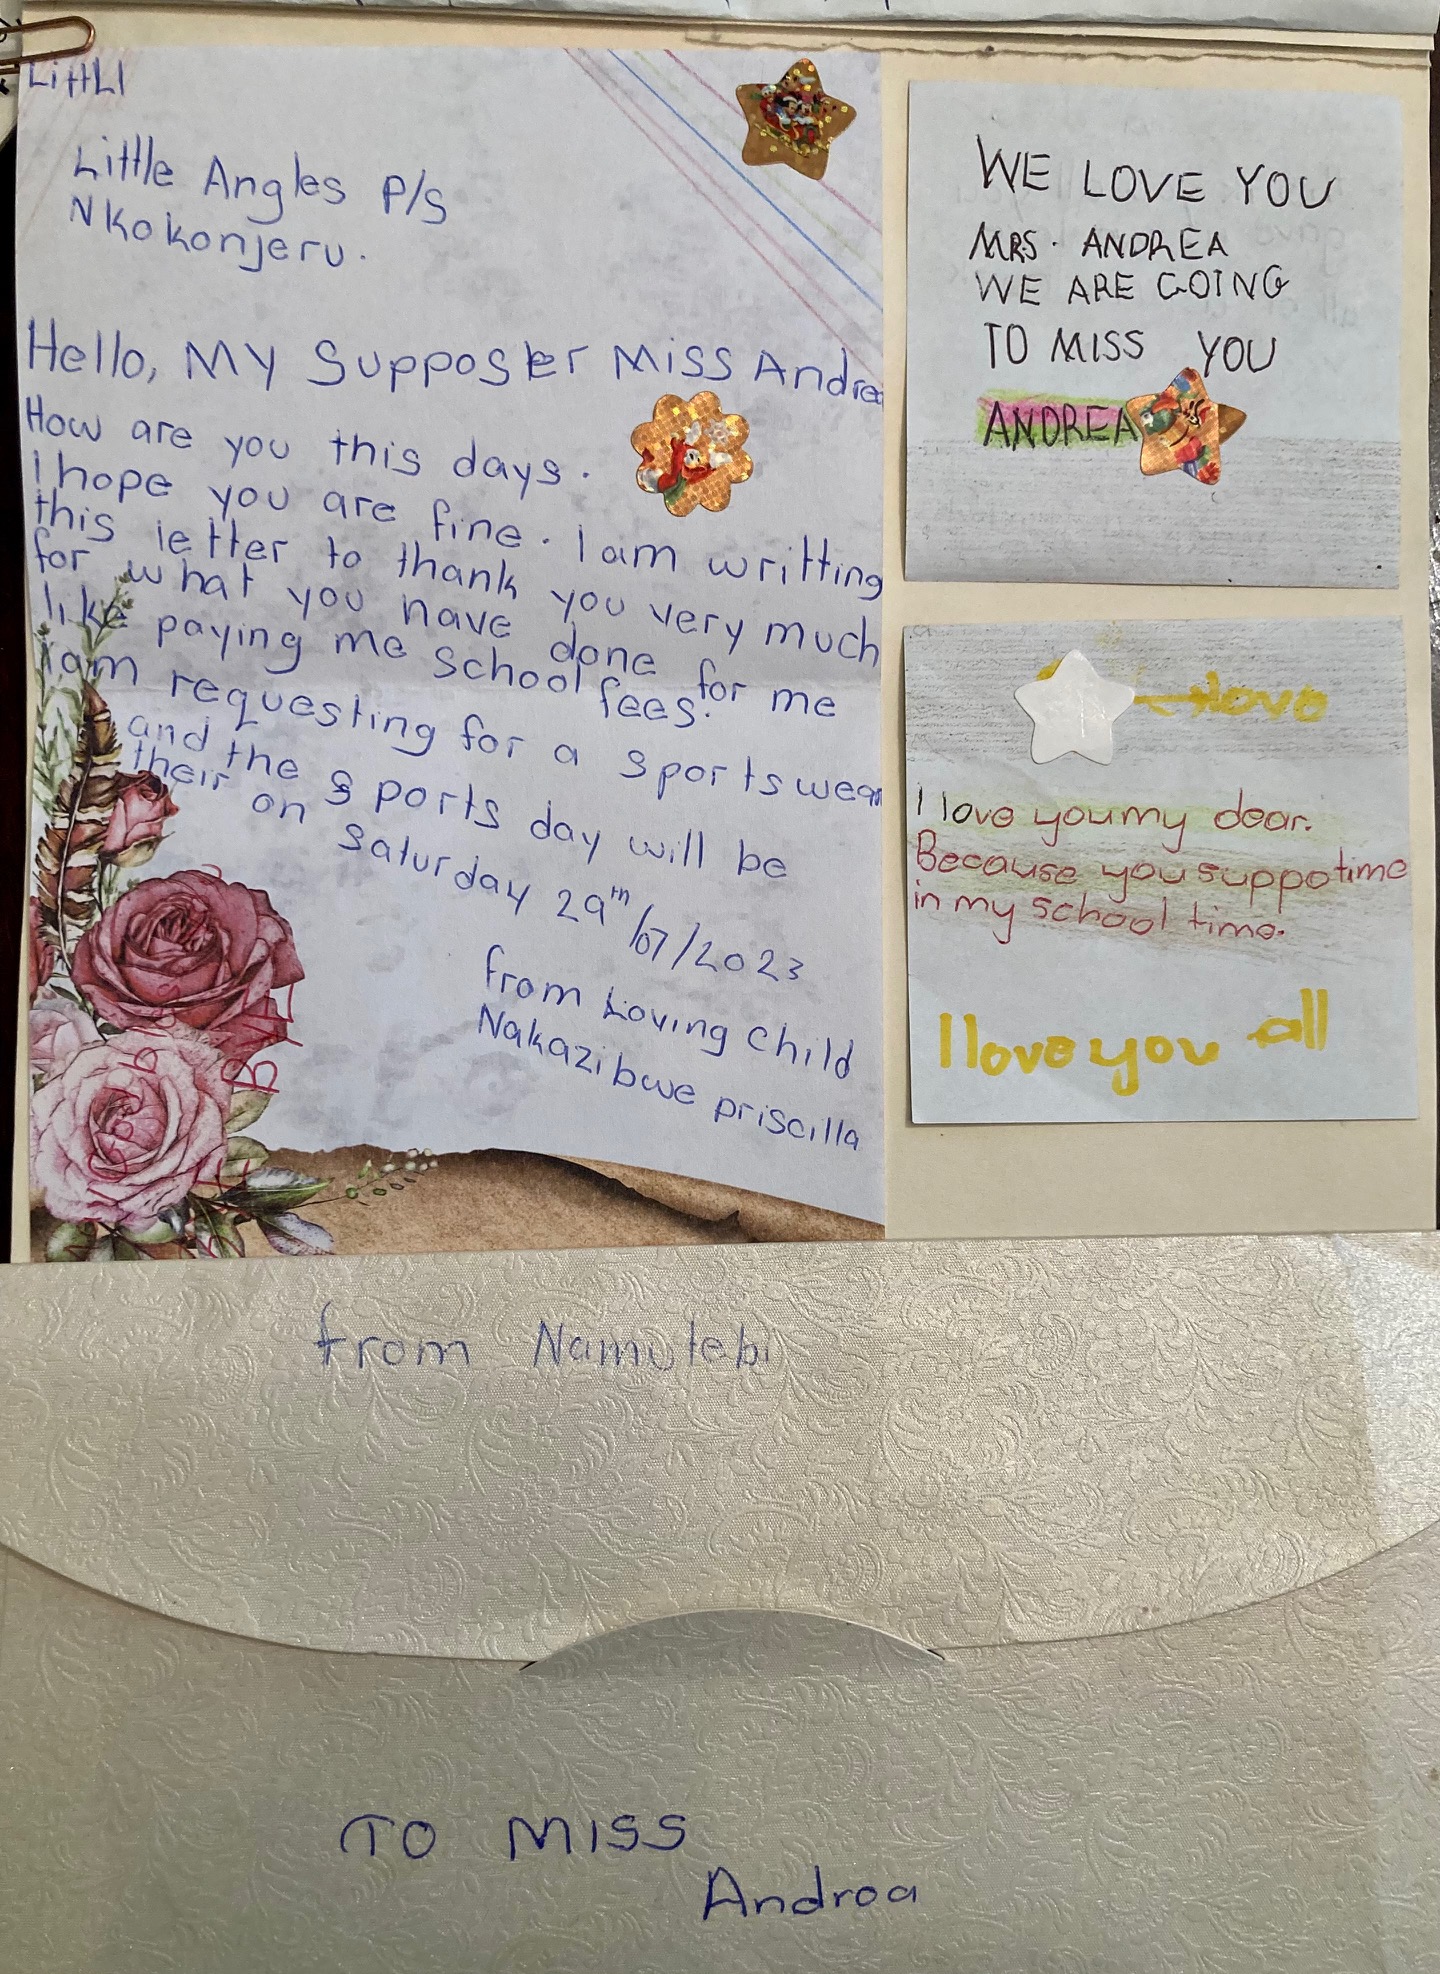 LittLl
Little Angles P/S
Nkokonjeru.
Hello, MY Supposter Miss Andrea
How are you this days.
I hope you are fine. I am writting
this letter to thank you very much
for what you have done for me
like paying me school fees.
iam requesting for a sports wear
and the sports day will be
their on Saturday 29th/07/2023
from Loving child
Nakazibwe priscilla
WE LOVE YOU
MRS. ANDREA
WE ARE GOING
TO MISS YOU
ANDREA
love
I love you my dear.
Because you suppo time
in my school time.
I love you all
from Namutebi
TO MISS
Androa